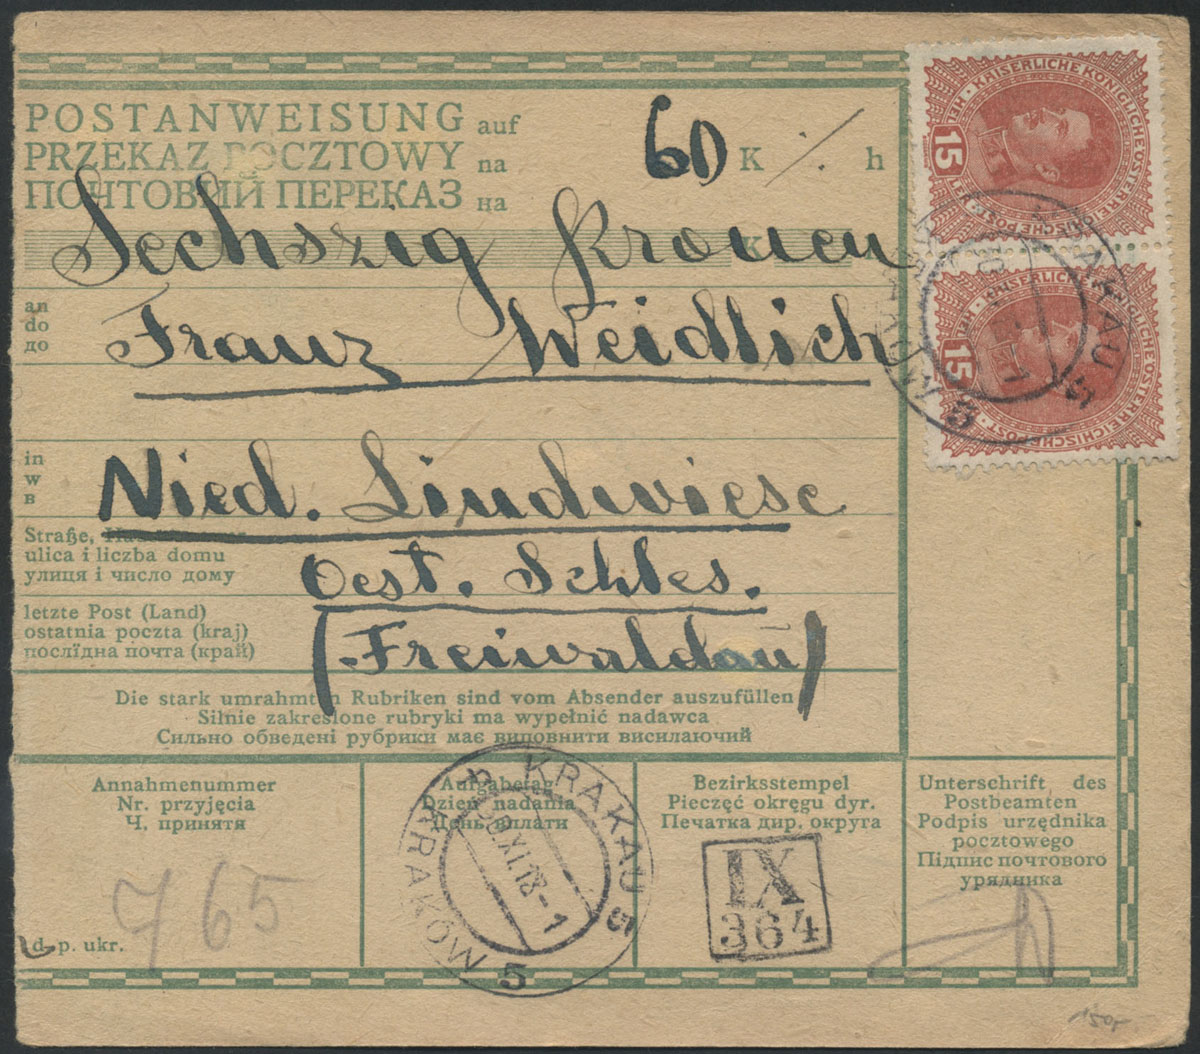 POSTANWEISUNG auf
PRZEKAZ POCZTOWY na
ПОЧТОВИЙ ПЕРЕКАЗ на
60 K ·/. h
Sechszig Kronen
an
do
до
Franz Weidlich
in
w
в
Nied. Lindwiese
Straße,
ulica i liczba domu
улиця і число дому
Oest. Schles.
letzte Post (Land)
ostatnia poczta (kraj)
послїдна почта (край)
(Freiwaldau)
Die stark umrahmten Rubriken sind vom Absender auszufüllen
Silnie zakreślone rubryki ma wypełnić nadawca
Сильно обведені рубрики має виповнити висилаючий
Annahmenummer
Nr. przyjęcia
Ч. принятя
765
d. p. ukr.
Aufgabetag
Dzień nadania
День вплати
KRAKAU 5
KRAKÓW 5
XI.18-1
Bezirksstempel
Pieczęć okręgu dyr.
Печатка дир. округа
IX
364
Unterschrift des
Postbeamten
Podpis urzędnika
pocztowego
Підпис почтового
урядника
KAISERLICHE KÖNIGLICHE ÖSTERREICHISCHE POST
15 HELLER
KAISERLICHE KÖNIGLICHE ÖSTERREICHISCHE POST
15 HELLER
KRAKAU 5
KRAKÓW 5